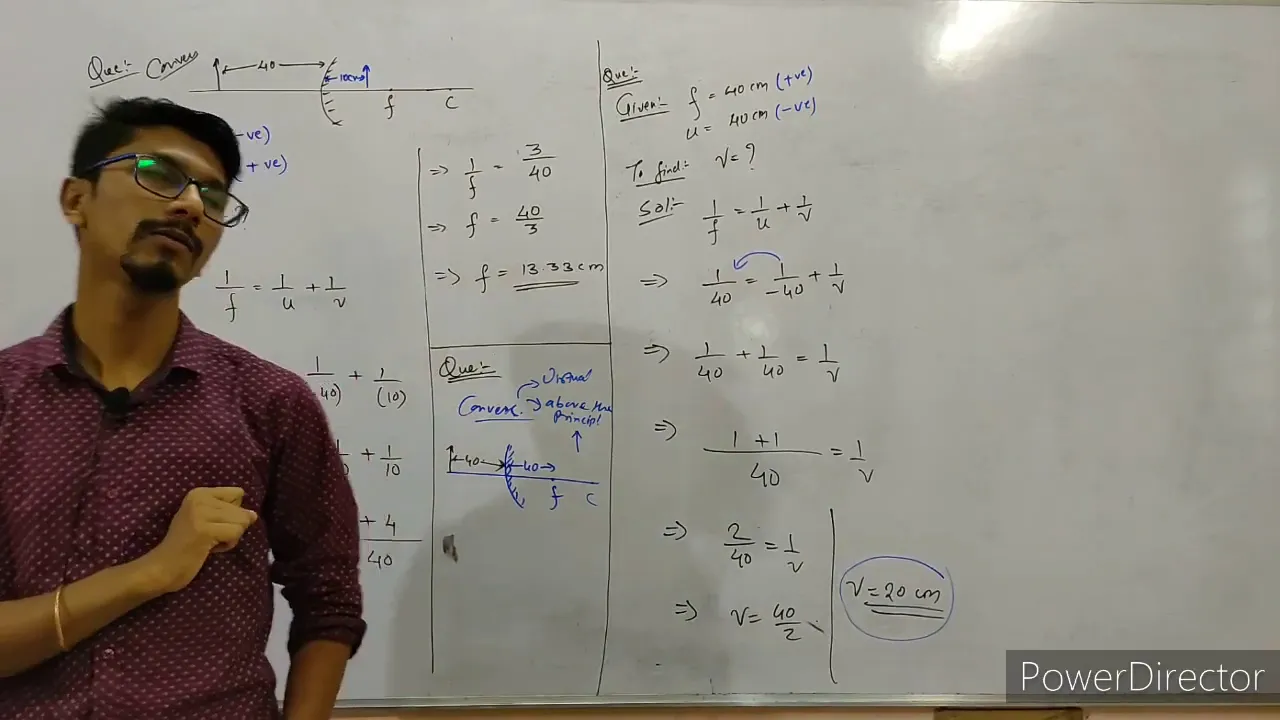 Que:- Convex
40
10cm
f C
-ve)
+ve)
?
1/f = 1/u + 1/v
1/40) + 1/(10)
+ 1/10
+ 4
40
=> 1/f = 3/40
=> f = 40/3
=> f = 13.33 cm
Que:-
Convex. → Virtual
→ above the
Principl
40 40
f C
Que:-
Given:- f = 40 cm (+ve)
u = 40 cm (-ve)
To find:- v = ?
Sol:- 1/f = 1/u + 1/v
=> 1/40 = 1/-40 + 1/v
=> 1/40 + 1/40 = 1/v
=> 1+1/40 = 1/v
=> 2/40 = 1/v
=> v = 40/2
v = 20 cm
PowerDirector